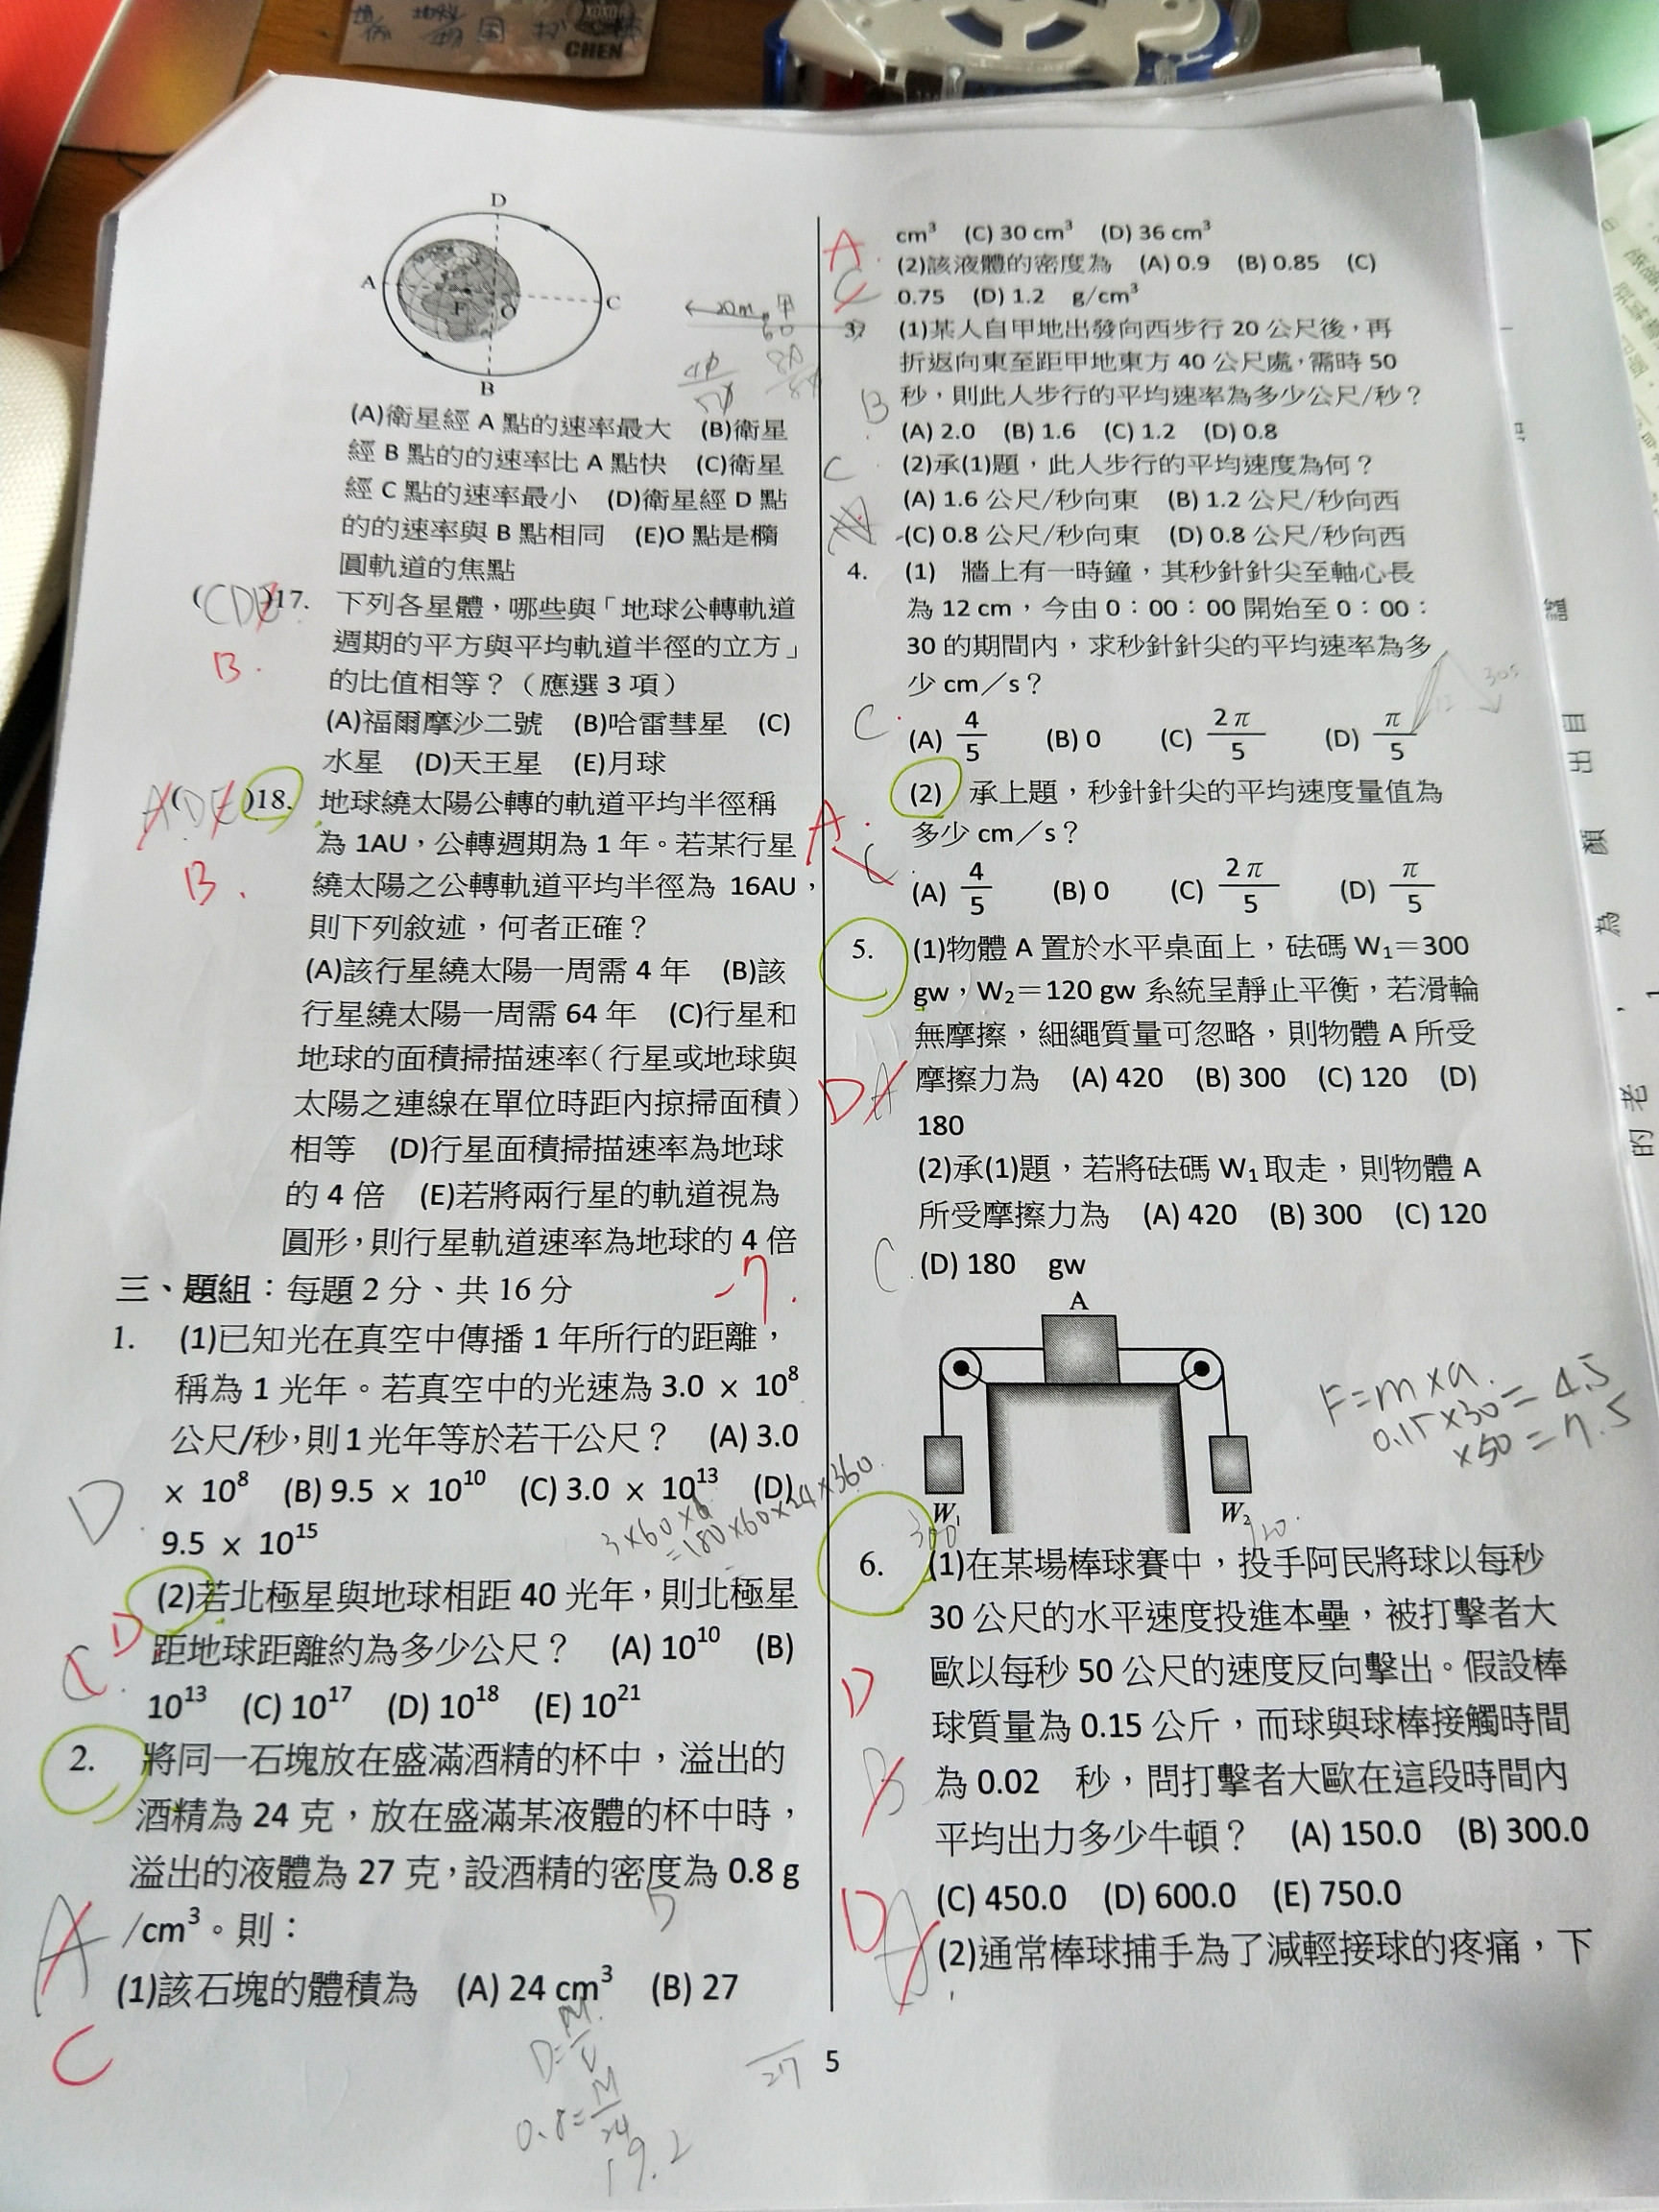 XOXO
CHEN
D
A
F
O
C
B
(A)衛星經 A 點的速率最大 (B)衛星
經 B 點的的速率比 A 點快 (C)衛星
經 C 點的速率最小 (D)衛星經 D 點
的的速率與 B 點相同 (E)O 點是橢
圓軌道的焦點
(CDE)17. 下列各星體，哪些與「地球公轉軌道
週期的平方與平均軌道半徑的立方」
B.
的比值相等？（應選 3 項）
(A)福爾摩沙二號 (B)哈雷彗星 (C)
水星 (D)天王星 (E)月球
A(DE)18. 地球繞太陽公轉的軌道平均半徑稱
為 1AU，公轉週期為 1 年。若某行星
B.
繞太陽之公轉軌道平均半徑為 16AU，
則下列敘述，何者正確？
(A)該行星繞太陽一周需 4 年 (B)該
行星繞太陽一周需 64 年 (C)行星和
地球的面積掃描速率（行星或地球與
太陽之連線在單位時距內掠掃面積）
相等 (D)行星面積掃描速率為地球
的 4 倍 (E)若將兩行星的軌道視為
圓形，則行星軌道速率為地球的 4 倍
-7.
三、題組：每題 2 分、共 16 分
1. (1)已知光在真空中傳播 1 年所行的距離，
稱為 1 光年。若真空中的光速為 3.0 × 10⁸
公尺/秒，則 1 光年等於若干公尺？ (A) 3.0
D
× 10⁸ (B) 9.5 × 10¹⁰ (C) 3.0 × 10¹³ (D)
9.5 × 10¹⁵
=180×60×24×360
(2)若北極星與地球相距 40 光年，則北極星
D
距地球距離約為多少公尺？ (A) 10¹⁰ (B)
C
10¹³ (C) 10¹⁷ (D) 10¹⁸ (E) 10²¹
2. 將同一石塊放在盛滿酒精的杯中，溢出的
酒精為 24 克，放在盛滿某液體的杯中時，
溢出的液體為 27 克，設酒精的密度為 0.8 g
A
/cm³。則：
(1)該石塊的體積為 (A) 24 cm³ (B) 27
C
0.8=M/24
19.2
27
5
cm³ (C) 30 cm³ (D) 36 cm³
A
(2)該液體的密度為 (A) 0.9 (B) 0.85 (C)
C
0.75 (D) 1.2 g/cm³
20m 甲
60
3. (1)某人自甲地出發向西步行 20 公尺後，再
折返向東至距甲地東方 40 公尺處，需時 50
B
秒，則此人步行的平均速率為多少公尺/秒？
(A) 2.0 (B) 1.6 (C) 1.2 (D) 0.8
C
(2)承(1)題，此人步行的平均速度為何？
(A) 1.6 公尺/秒向東 (B) 1.2 公尺/秒向西
(C) 0.8 公尺/秒向東 (D) 0.8 公尺/秒向西
4. (1) 牆上有一時鐘，其秒針針尖至軸心長
為 12 cm，今由 0：00：00 開始至 0：00：
30 的期間內，求秒針針尖的平均速率為多
少 cm／s？
12
30s
C
(A) 4/5 (B) 0 (C) 2π/5 (D) π/5
(2) 承上題，秒針針尖的平均速度量值為
A
多少 cm／s？
C
(A) 4/5 (B) 0 (C) 2π/5 (D) π/5
5. (1)物體 A 置於水平桌面上，砝碼 W₁＝300
gw，W₂＝120 gw 系統呈靜止平衡，若滑輪
無摩擦，細繩質量可忽略，則物體 A 所受
D A
摩擦力為 (A) 420 (B) 300 (C) 120 (D)
180
(2)承(1)題，若將砝碼 W₁ 取走，則物體 A
所受摩擦力為 (A) 420 (B) 300 (C) 120
C
(D) 180 gw
A
W₁
W₂
300
120
F=m×a
0.15×30=4.5
×50=7.5
6. (1)在某場棒球賽中，投手阿民將球以每秒
30 公尺的水平速度投進本壘，被打擊者大
D
歐以每秒 50 公尺的速度反向擊出。假設棒
球質量為 0.15 公斤，而球與球棒接觸時間
B
為 0.02 秒，問打擊者大歐在這段時間內
平均出力多少牛頓？ (A) 150.0 (B) 300.0
D
(C) 450.0 (D) 600.0 (E) 750.0
A
(2)通常棒球捕手為了減輕接球的疼痛，下
題
目
出
顏
為
，
老
的